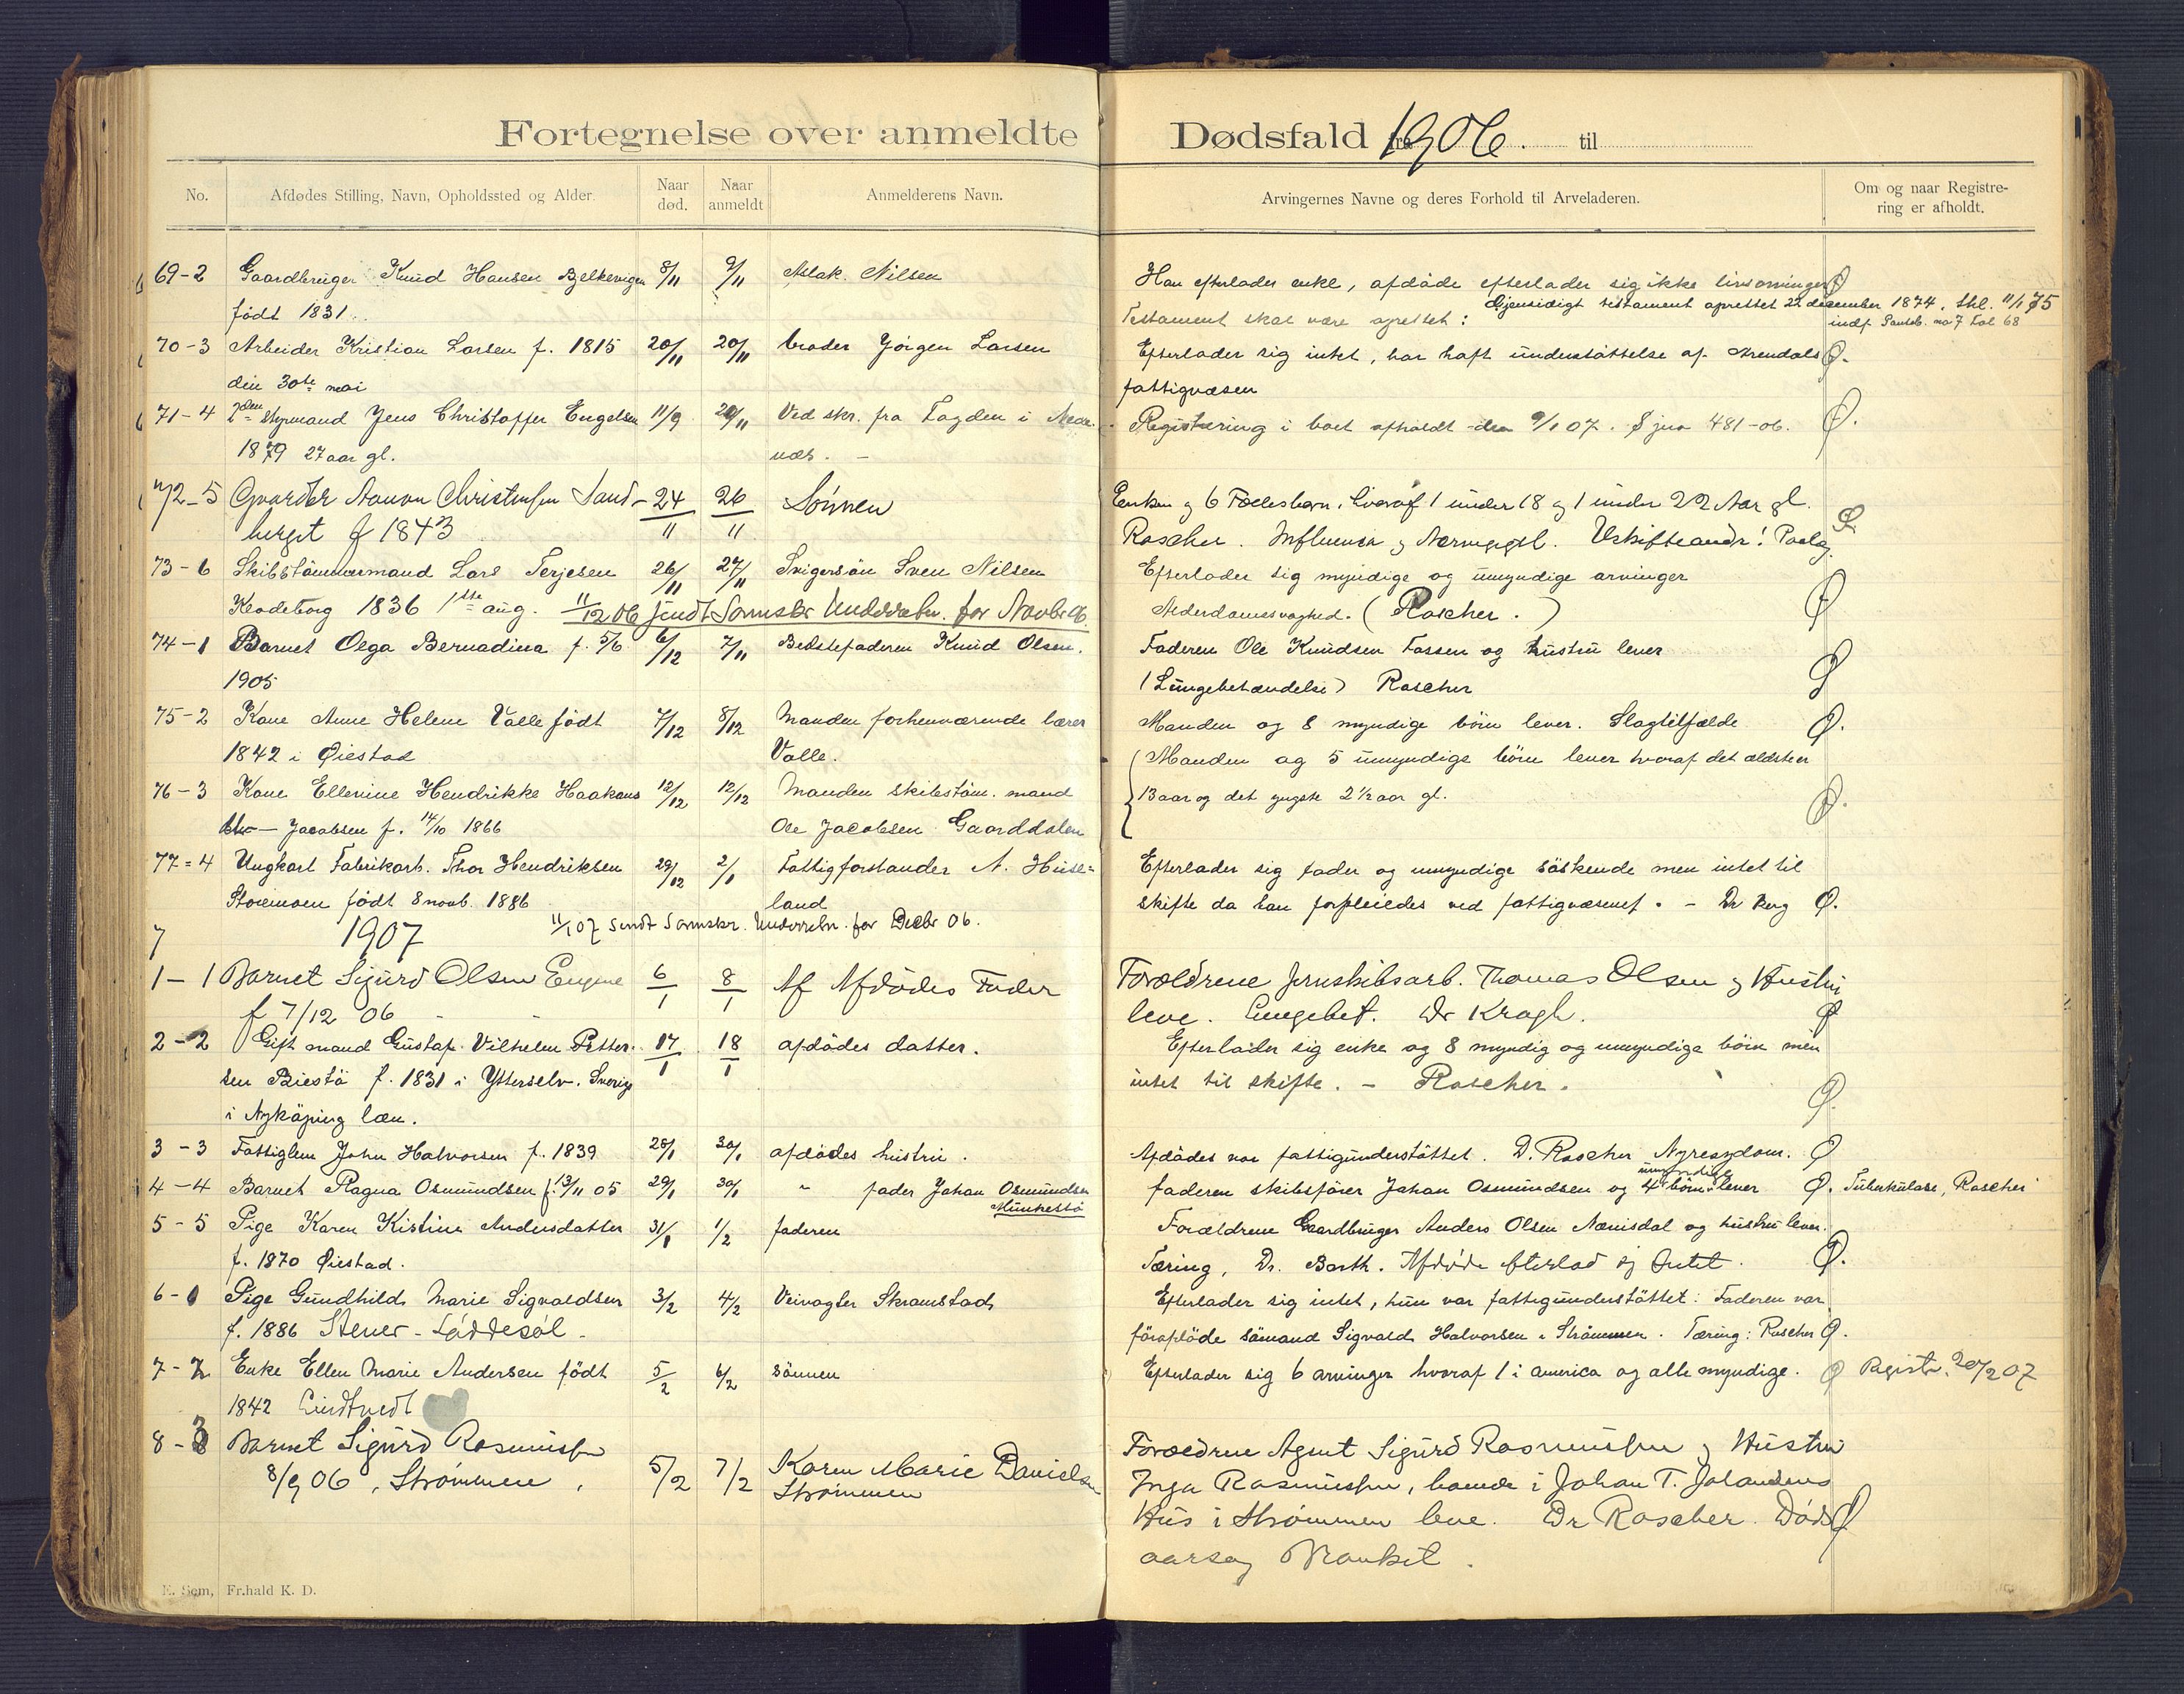 Fortegnelse over anmeldte Dødsfald fra 1906. til
No. Afdødes Stilling, Navn, Opholdssted og Alder. Naar død. Naar anmeldt Anmelderens Navn. Arvingernes Navne og deres Forhold til Arveladeren. Om og naar Registrering er afholdt.
69-2 Gaardbruger Knud Hansen Bjelkevigen 8/11 9/11 Aslak Nilsen Han efterlader enke, afdøde efterlader sig ikke livsarvinger
født 1831. Testament skal være oprettet: Gjensidigt testament oprettet 22 desember 1874, thl. 11/1 75
indf. Panteb. no 7 Fol 68
70-3 Arbeider Kristian Larsen f. 1815 20/11 20/11 broder Jörgen Larsen Efterlader sig intet, har haft understøttelse af Arendals Ø.
den 30te mai fattigvæsen
71-4 2den Styrmand Jens Christoffer Engelsen 11/9 20/11 Ved skr. fra Fogden i Nede- Registrering i boet afholdt den 9/1 07. S jrn 481-06. Ø.
1879 27 aar gl. næs. -
72-5 Gaardbr Aanon Christensen Sand- 24/11 26/11 Sönnen Enken og 6 Fællesbørn, hvoraf 1 under 18 og 1 under 22 Aar gl.
berget f 1843 Roscher. Influenza
73-6 Skibstömmermand Lars Terjesen 26/11 27/11 Svigersön Sven Nilsen Efterlader sig myndige og umyndige arvinger
Klodeborg 1836 1ste aug. 11/12 06 sendt Sornskr Underretn. for Novbr 06. Alderdomssvaghed. (Roscher.) Ø
74-1 Barnet Olga Bernadina f. 5/6 6/12 7/11 Bedstefaderen Knud Olsen. Faderen Ole Knudsen Fossen og hustru lever
1905 (Lungebetændelse) Roscher Ø
75-2 Kone Anne Helene Valle født 7/12 8/12 Manden forhenværende lærer Manden og 8 myndige börn lever. Slagtilfælde Ø.
1842 i Øiestad Valle.
Manden og 5 umyndige börn lever hvoraf det ældste er
76-3 Kone Ellenine Hendrikke Haakons 12/12 12/12 Manden skibstöm. mand 13 aar og det yngste 2½ aar gl. Ø.
Jacobsen f. 14/10 1866 Ole Jacobsen Gaarddalen
77=4 Ungkarl Fabrikarb. Thor Hendriksen 29/12 2/1 Fattigforstander A. Huse- Efterlader sig fader og umyndige söskende men intet til
Stoiemoen født 8 novb. 1886 land skifte da han forpleiedes ved fattigvæsenet. - Dr Berg Ø.
7 1907 11/1 07 sendt Sornskr. Underretn. for Decbr 06.
1-1 Barnet Sigurd Olsen Eugene 6/1 8/1 Af Afdödes Fader Forældrene Jernskibsarb. Thomas Olsen og Hustru
f 7/12 06 leve. Lungebet. Dr Kragh. Ø
2-2 Gift mand Gustaf Vilhelm Petter- 17/1 18/1 afdödes datter. Efterlader sig enke og 8 myndig og umyndige börn men
sen Biestö f. 1831 i Ytterselv. Sverige intet til skifte. - Roscher. Ø.
i Nyköping læn.
3-3 Fattiglem John Halvorsen f. 1839 28/1 30/1 afdödes hustru. Afdödes var fattigunderstöttet. D. Roscher Nyresygdom. Ø
4-4 Barnet Ragna Osmundsen f. 13/11 05 29/1 30/1 " fader Johan Osmundsen Munkestö faderen skibsförer Johan Osmundsen og 4 umyndige börn lever Ø. Tuberkulose, Roscher
5-5 Pige Karen Kistine Andersdatter 31/1 1/2 faderen Forældrene Gaardbruger Anders Olsen Næmisdal og hustru lever.
f. 1870 Øiestad. Tæring, Dr. Barth. Afdöde efterlod sig Intet. Ø.
6-1 Pige Gundhild Marie Sigvaldsen 3/2 4/2 Veivogter Skramstad Efterlader sig intet, hun var fattigunderstöttet: Faderen var
f. 1886 Stener - Löddesöl - föraflöde sömand Sigvald Halvorsen i Strömmen. Tæring: Roscher Ø.
7-2 Enke Ellen Marie Andersen født 5/2 6/2 sönnen Efterlader sig 6 arvinger hvoraf 1 i america og alle myndige. Ø Registr. 20/2 07
1842 Lindtvedt
8-3 Barnet Sigurd Rasmussen Forældrene Agent Sigurd Rasmussen og Hustru
8/9 06, Strömmen, 5/2 7/2 Karen Marie Danielsen Inga Rasmussen, boende i Johan T. Jolandsens
Strömmen Hus i Strömmen leve. Dr Roscher. Döds Ø
aarsag Bronkit.
E. Sem, Fr.hald K. D.